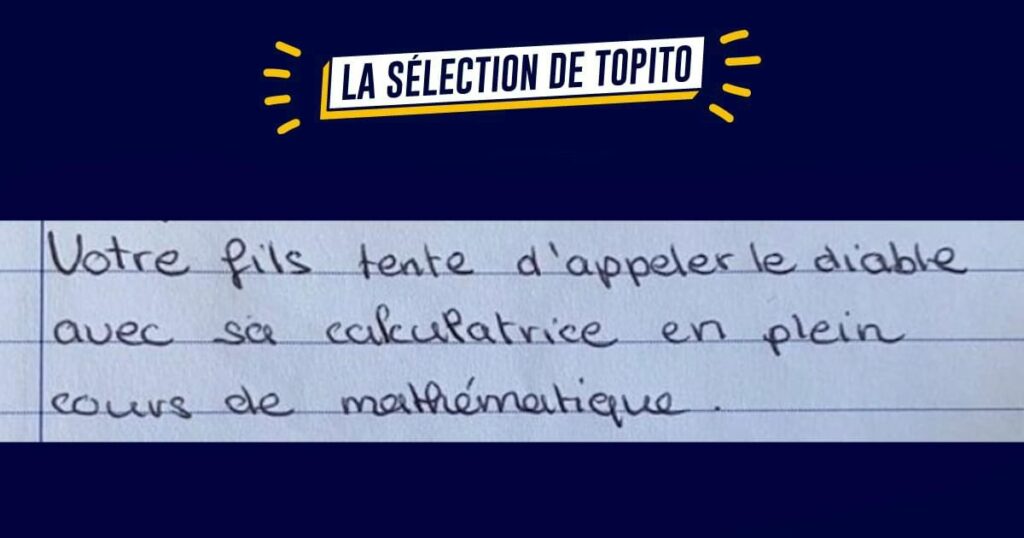 LA SÉLECTION DE TOPITO
Votre fils tente d'appeler le diable
avec sa calculatrice en plein
cours de mathématique.